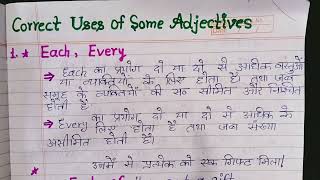 Correct Uses of Some Adjectives
1. * Each, Every
→ Each का प्रयोग दो या दो से अधिक वस्तुओं
या व्यक्तियों के लिए होता है तथा जब
समूह के व्यक्तियों की सं० सीमित और निश्चित
होती है
→ Every का प्रयोग दो या दो से अधिक के
लिए होता है तथा जब संख्या
असीमित होती है।
उनमें से प्रत्येक को एक गिफ्ट मिला।